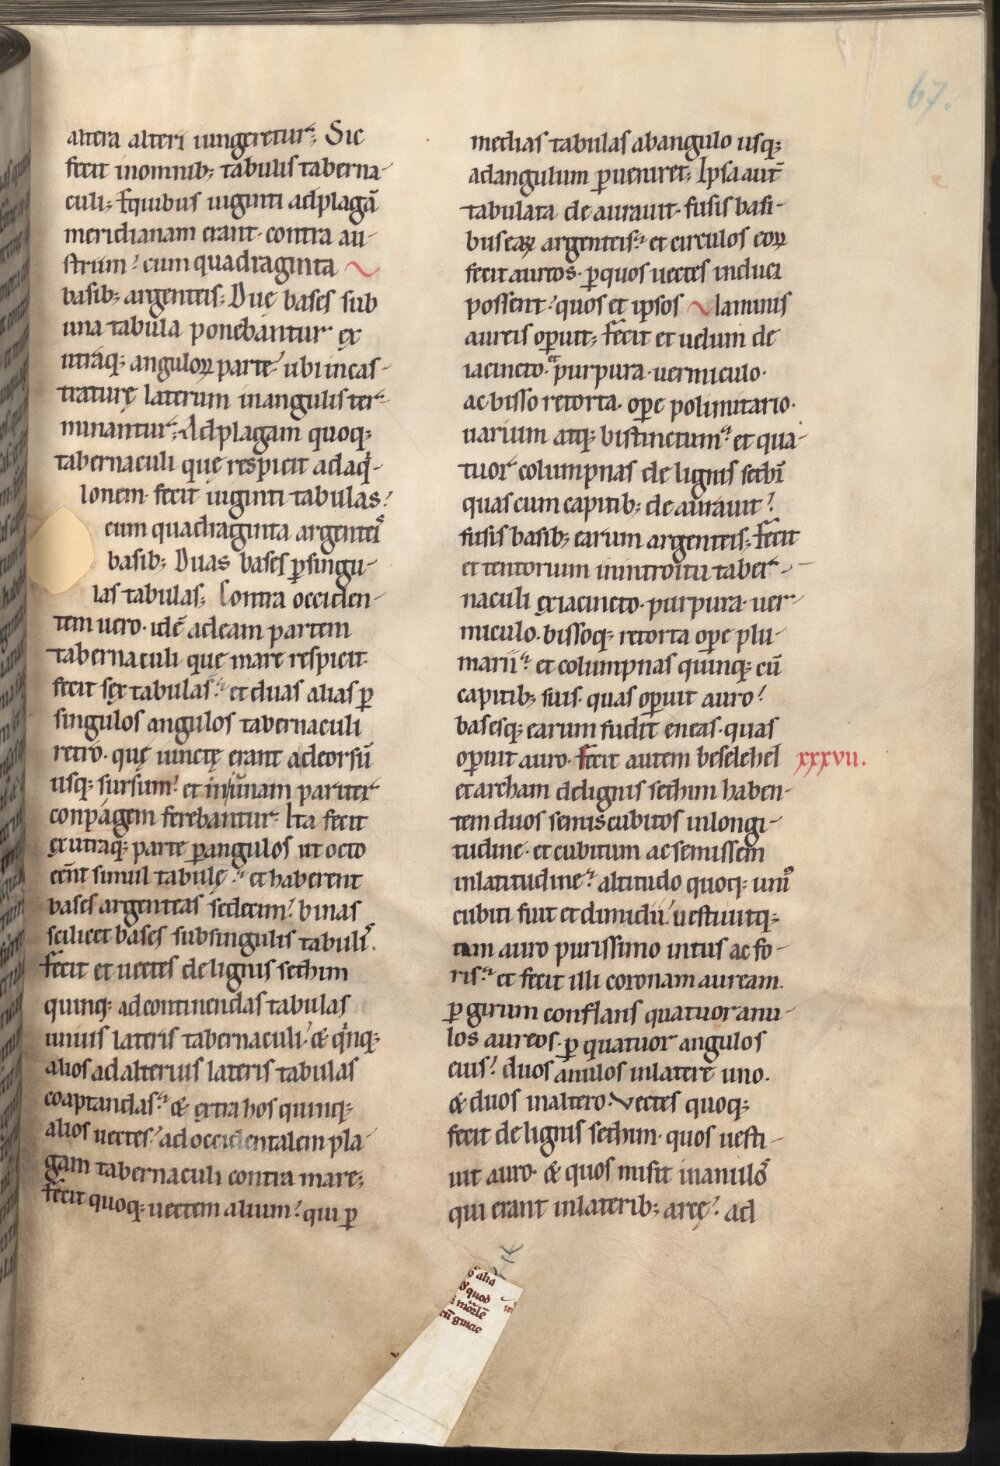 67.
altera alteri iungeretur; Sic
fecit inomnib; tabulis taberna-
culi; Equibus uiginti adplagā
meridianam erant· contra au-
strum? cum quadraginta
basib; argenteis; Duę bases sub
una tabula ponebantur ex
utraq; anguloꝝ parte· ubi incas-
traturę laterum inangulis ter-
minantur; Adplagam quoq;
tabernaculi quę respicit adaq̇-
lonem· fecit uiginti tabulas?
cum quadraginta argenteis
basib; Duas bases ꝑsingu-
las tabulas; Contra occiden-
tem uero· idē adeam partem
tabernaculi quę mare respicit·
fecit sęx tabulas? et duas alias ꝑ
singulos angulos tabernaculi
retro· quę iunctę erant adeorsū
usq; sursum? et in unam pariter
conpagem ferebantur· Ita fecit
ex utraq; parte ꝑangulos ut octo
eēnt simul tabulę? et haberent
bases argenteas sedecim? binas
scilicet bases subsingulis tabulis.
Fecit et uectes delignis sethim
quinq; adcontinendas tabulas
unius lateris tabernaculi? & q̇nq;
alios adalterius lateris tabulas
coaptandas? & extra hos quinq;
alios uectes? adoccidentalem pla-
gam tabernaculi contra mare;
fecit quoq; uectem alium? qui ꝑ
medias tabulas abangulo usq;
adangulum ꝑueniret; Ipsa aut̄
tabulata de aurauit· fusis basi-
bus eaꝝ argenteis? et circulos eoꝝ
fecit aureos· ꝑquos uectes induci
possent? quos et ipsos laminis
aureis oꝑuit; Fecit et uelum de
iacincto· purpura· uermiculo·
ac bisso retorta· oꝑe polimitario·
uarium atq; distinctum? et qua-
tuor columpnas de lignis sethī
quas cum capitib; de aurauit?
fusis basib; earum argenteis; Fecit
et tentorium inintroitu taber-
naculi ex iacincto· purpura· uer-
miculo· bissoq; retorta oꝑe plu-
marii? et columpnas quinq; cū
capitib; suis· quas oꝑuit auro?
basesq; earum fudit eneas· quas
oꝑuit auro· Fecit autem beselehel xxxvii.
et archam delignis sethim haben-
tem duos semiscubitos inlongi-
tudine· et cubitum ac semissem
inlatitudine? altitudo quoq; uni᷒
cubiti fuit et dimidii? uestiuitq;
eam auro purissimo intus ac fo-
ris? et fecit illi coronam auream·
ꝑ girum conflans quatuor anu-
los aureos· ꝑ quatuor angulos
eius? duos anulos inlatere uno·
& duos inaltero· Vectes quoq;
fecit de lignis sethim· quos uesti-
uit auro· & quos misit inanulos
qui erant inlaterib; arcę? ad
alia
quod